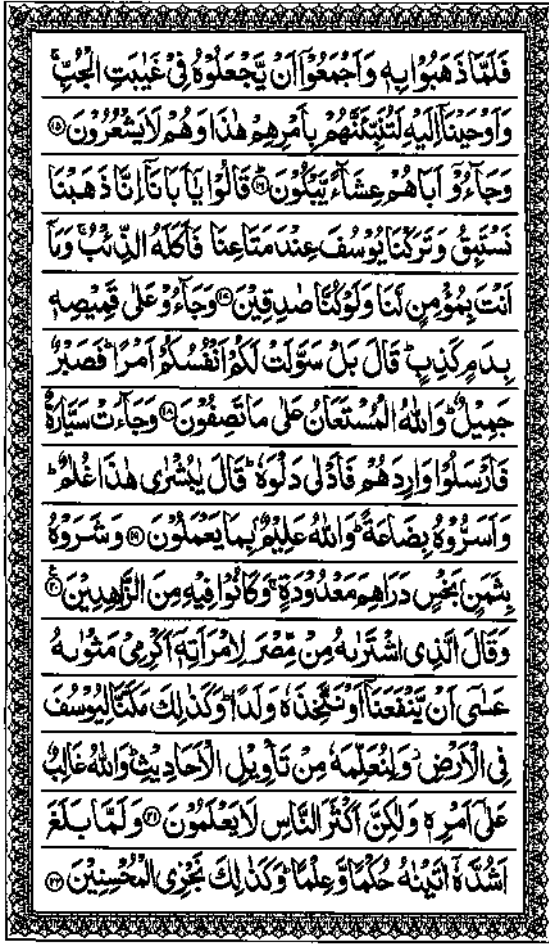 فَلَمَّا ذَهَبُوْا بِهٖ وَاَجْمَعُوْۤا اَنْ يَّجْعَلُوْهُ فِيْ غَيٰبَتِ الْجُبِّ ۚ
وَاَوْحَيْنَاۤ اِلَيْهِ لَتُنَبِّئَنَّهُمْ بِاَمْرِهِمْ هٰذَا وَهُمْ لَا يَشْعُرُوْنَ ۝۱۵
وَجَآءُوْۤ اَبَاهُمْ عِشَآءً يَّبْكُوْنَ ۝۱۶ؕ قَالُوْا يٰۤاَبَانَاۤ اِنَّا ذَهَبْنَا
نَسْتَبِقُ وَتَرَكْنَا يُوْسُفَ عِنْدَ مَتَاعِنَا فَاَكَلَهُ الذِّئْبُ ۚ وَمَاۤ
اَنْتَ بِمُؤْمِنٍ لَّنَا وَلَوْ كُنَّا صٰدِقِيْنَ ۝۱۷ وَجَآءُوْ عَلٰى قَمِيْصِهٖ
بِدَمٍ كَذِبٍ ؕ قَالَ بَلْ سَوَّلَتْ لَكُمْ اَنْفُسُكُمْ اَمْرًا ؕ فَصَبْرٌ
جَمِيْلٌ ؕ وَاللّٰهُ الْمُسْتَعَانُ عَلٰى مَا تَصِفُوْنَ ۝۱۸ وَجَآءَتْ سَيَّارَةٌ
فَاَرْسَلُوْا وَارِدَهُمْ فَاَدْلٰى دَلْوَهٗ ؕ قَالَ يٰبُشْرٰى هٰذَا غُلٰمٌ ؕ
وَاَسَرُّوْهُ بِضَاعَةً ؕ وَاللّٰهُ عَلِيْمٌۢ بِمَا يَعْمَلُوْنَ ۝۱۹ وَشَرَوْهُ
بِثَمَنٍۭ بَخْسٍ دَرَاهِمَ مَعْدُوْدَةٍ ۚ وَكَانُوْا فِيْهِ مِنَ الزَّاهِدِيْنَ ۝۲۰
وَقَالَ الَّذِي اشْتَرٰىهُ مِنْ مِّصْرَ لِامْرَاَتِهٖۤ اَكْرِمِيْ مَثْوٰىهُ
عَسٰۤى اَنْ يَّنْفَعَنَاۤ اَوْ نَتَّخِذَهٗ وَلَدًا ؕ وَكَذٰلِكَ مَكَّنَّا لِيُوْسُفَ
فِي الْاَرْضِ ؗ وَلِنُعَلِّمَهٗ مِنْ تَاْوِيْلِ الْاَحَادِيْثِ ؕ وَاللّٰهُ غَالِبٌ
عَلٰۤى اَمْرِهٖ وَلٰكِنَّ اَكْثَرَ النَّاسِ لَا يَعْلَمُوْنَ ۝۲۱ وَلَمَّا بَلَغَ
اَشُدَّهٗۤ اٰتَيْنٰهُ حُكْمًا وَّعِلْمًا ؕ وَكَذٰلِكَ نَجْزِي الْمُحْسِنِيْنَ ۝۲۲